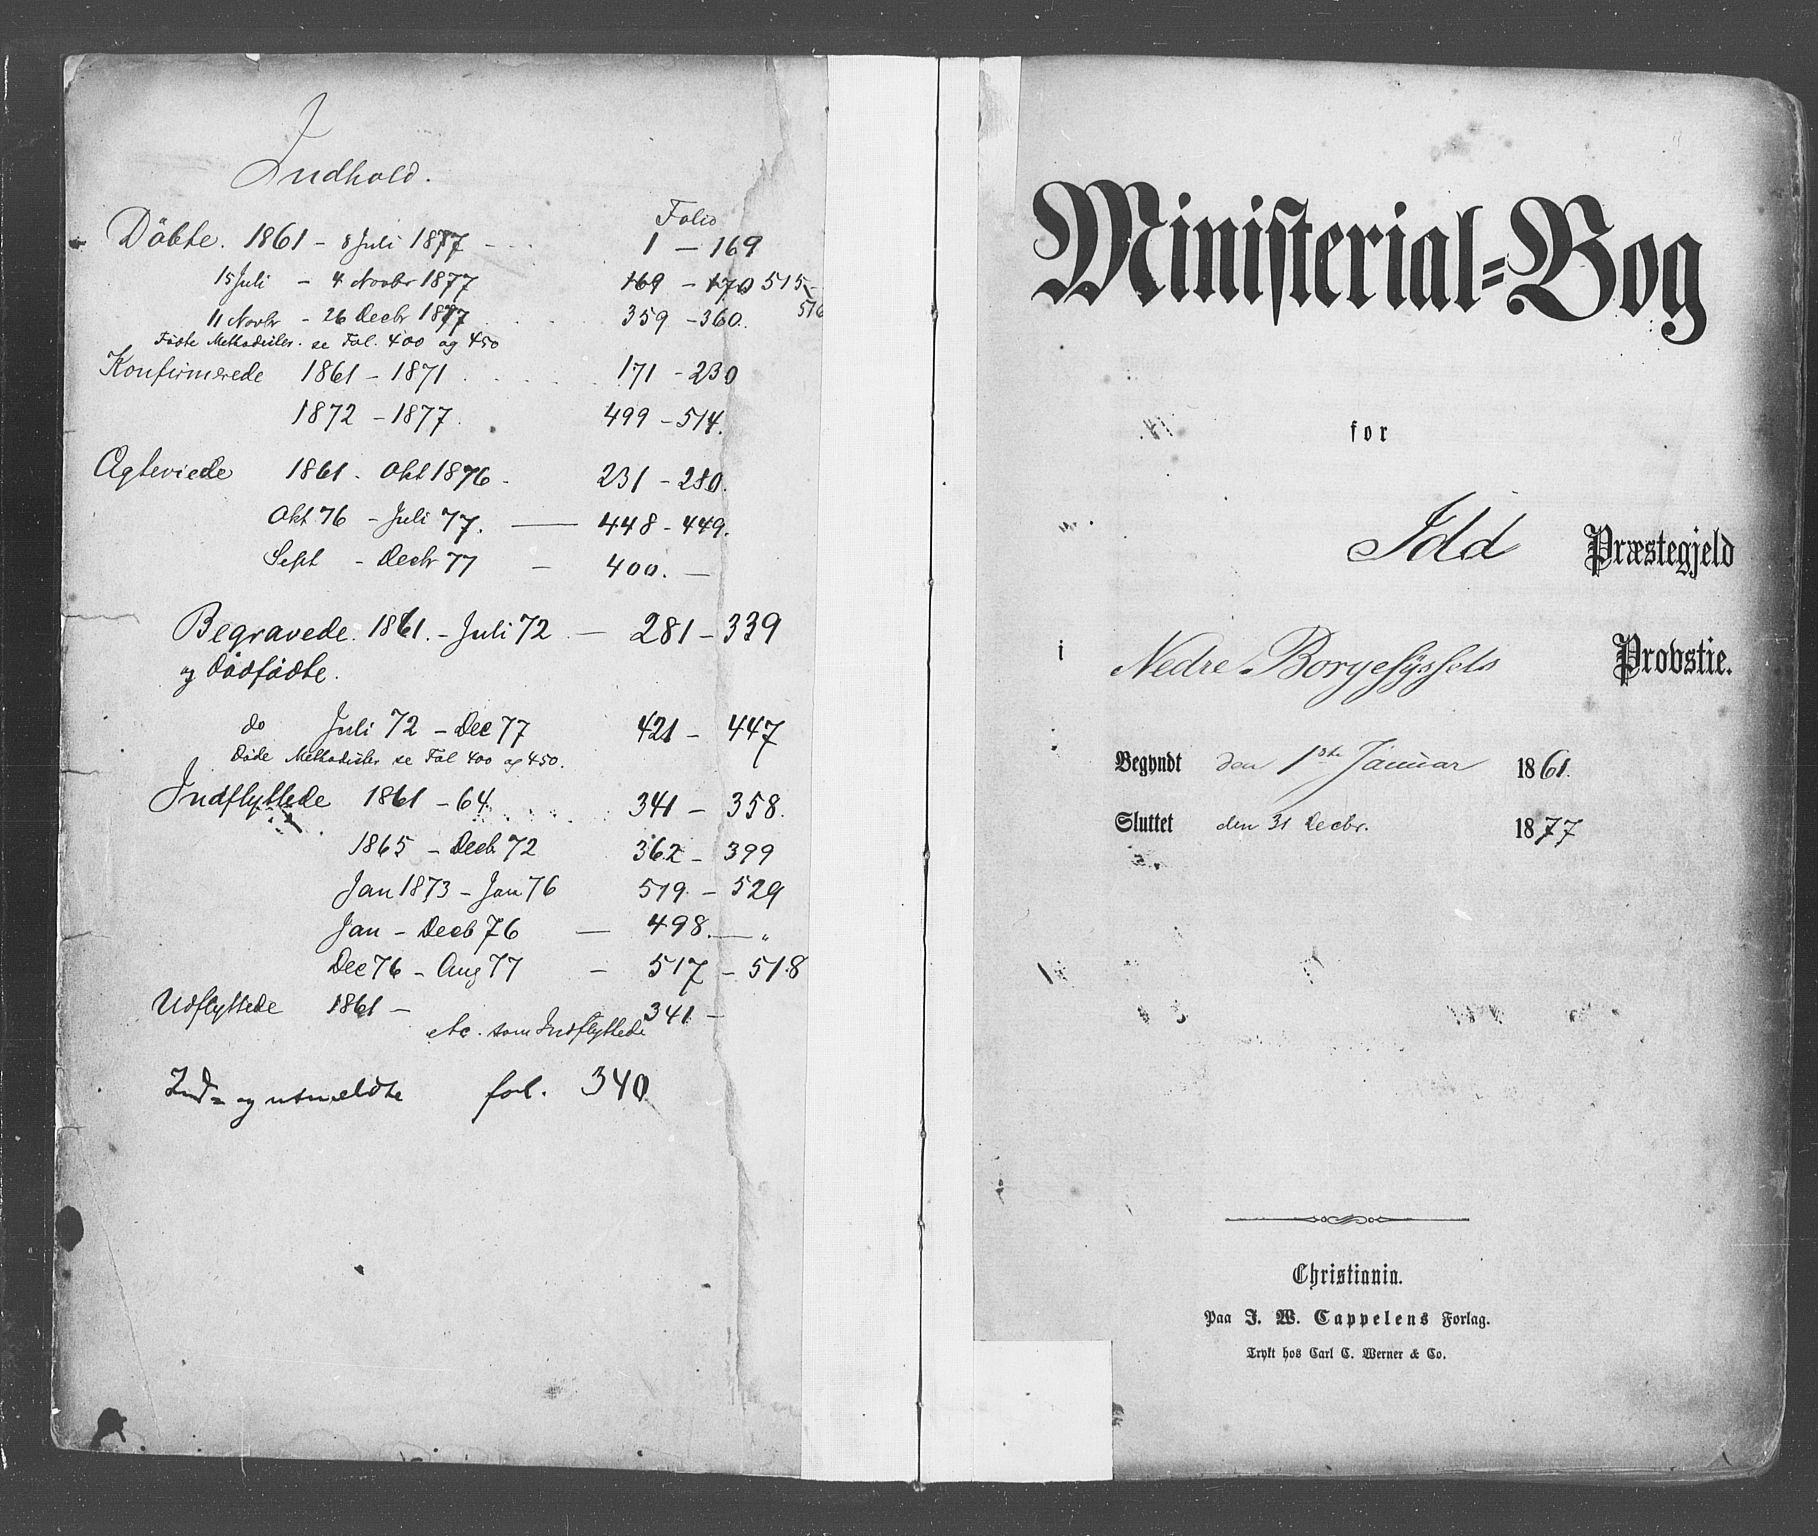 Indhold.
Folio
Döbte. 1861 - 8 Juli 1877 - 1 - 169
15 Juli - 4 Novbr 1877 169 - 170 515-
516
11 Novbr - 26 Decbr 1877 359 - 360.
Födte Methodister. se Fol. 400 og 450
Konfirmerede 1861 - 1871 171 - 230
1872 - 1877. 499 - 514.
Ægteviede 1861 - Okt 1876 - 231 - 280.
Okt 76 - Juli 77. — 448 - 449.
Sept - Decbr 77 — 400. —
Begravede. 1861. - Juli 72 — 281 - 339
og Dödfödte.
do Juli 72 - Dec 77 421 - 447
Döde Methodister se Fol 400 og 450.
Indflyttede 1861 - 64. 341 - 358.
1865 - Decb 72 362 - 399
Jan 1873 - Jan 76 519 - 529
Jan - Decb 76 — 498. — "
Dec 76 - Aug 77 - 517 - 518
Udflyttede 1861 - 341 -
etc. som Indflyttede
Ind= og utmeldte fol. 340
Ministerial=Bog
for
Idd Præstegjeld
i Nedre Borgesyssels Provstie.
Begyndt den 1ste Januar 1861.
Sluttet den 31 Decbr. 1877
Christiania.
Paa J. W. Cappelens Forlag.
Trykt hos Carl C. Werner & Co.